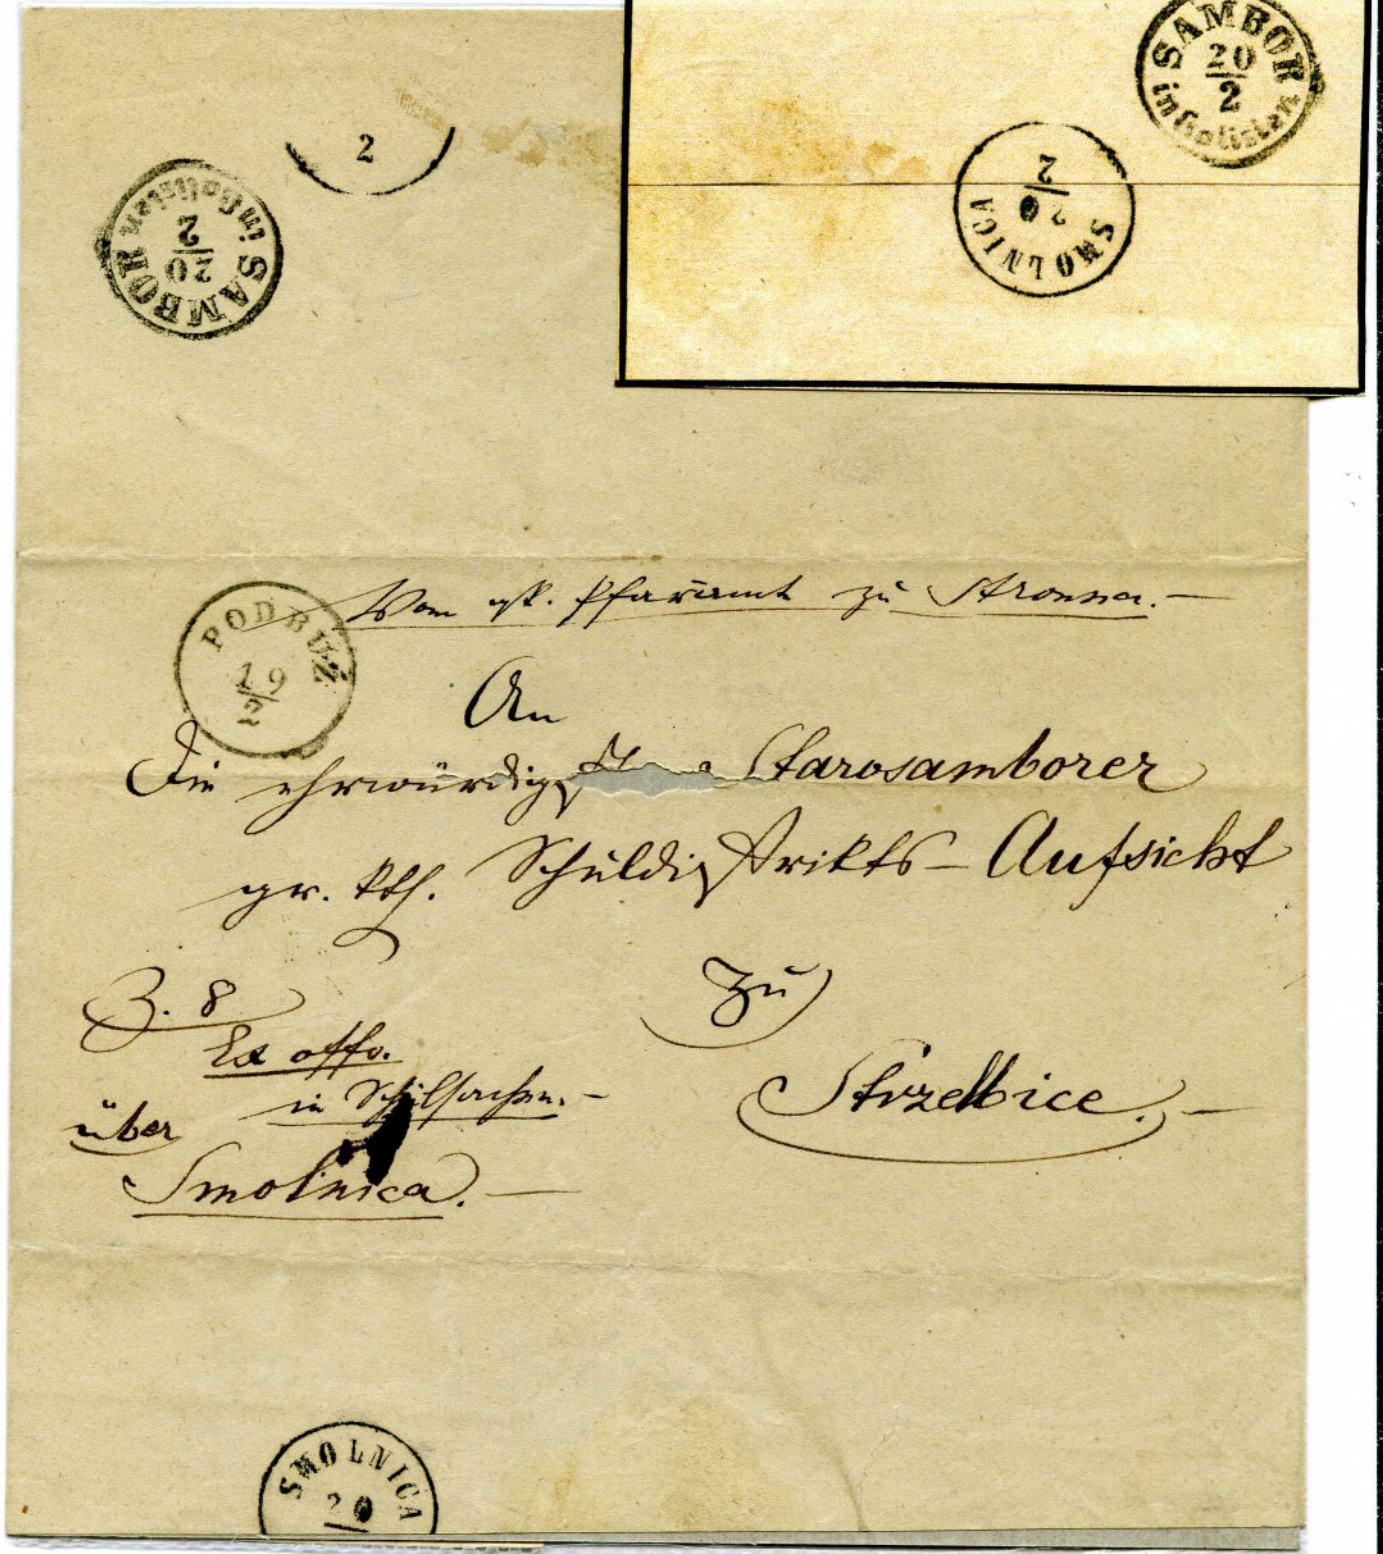 SAMBOR
20
2
in Galizien
2
20
SMOLNICA
2
SAMBOR
20
2
in Galizien
PODBUŻ
19
2
Vom gk. Pfarramt zu Stronna.
An
Die ehrwürdige Starosamborer
gr. kth. Schuldistrikts-Aufsicht
Z. 8
Ex offo.
in Schulsachen.
zu
über
Strzelbice.
Smolnica.
SMOLNICA
20